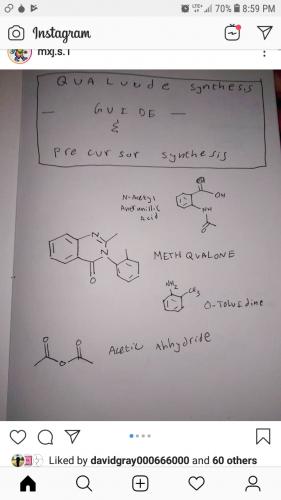 70% 8:59 PM
Instagram
mxj.s.1
Qualuude synthesis
— GUIDE —
&
precursor synthesis
OH
OH
N-Acetyl
Anthranillic
Acid
NH
O
N
N
O
METHQUALONE
NH2
CH3
O-Toluidine
O O
O
Acetic Anhydride
Liked by davidgray000666000 and 60 others